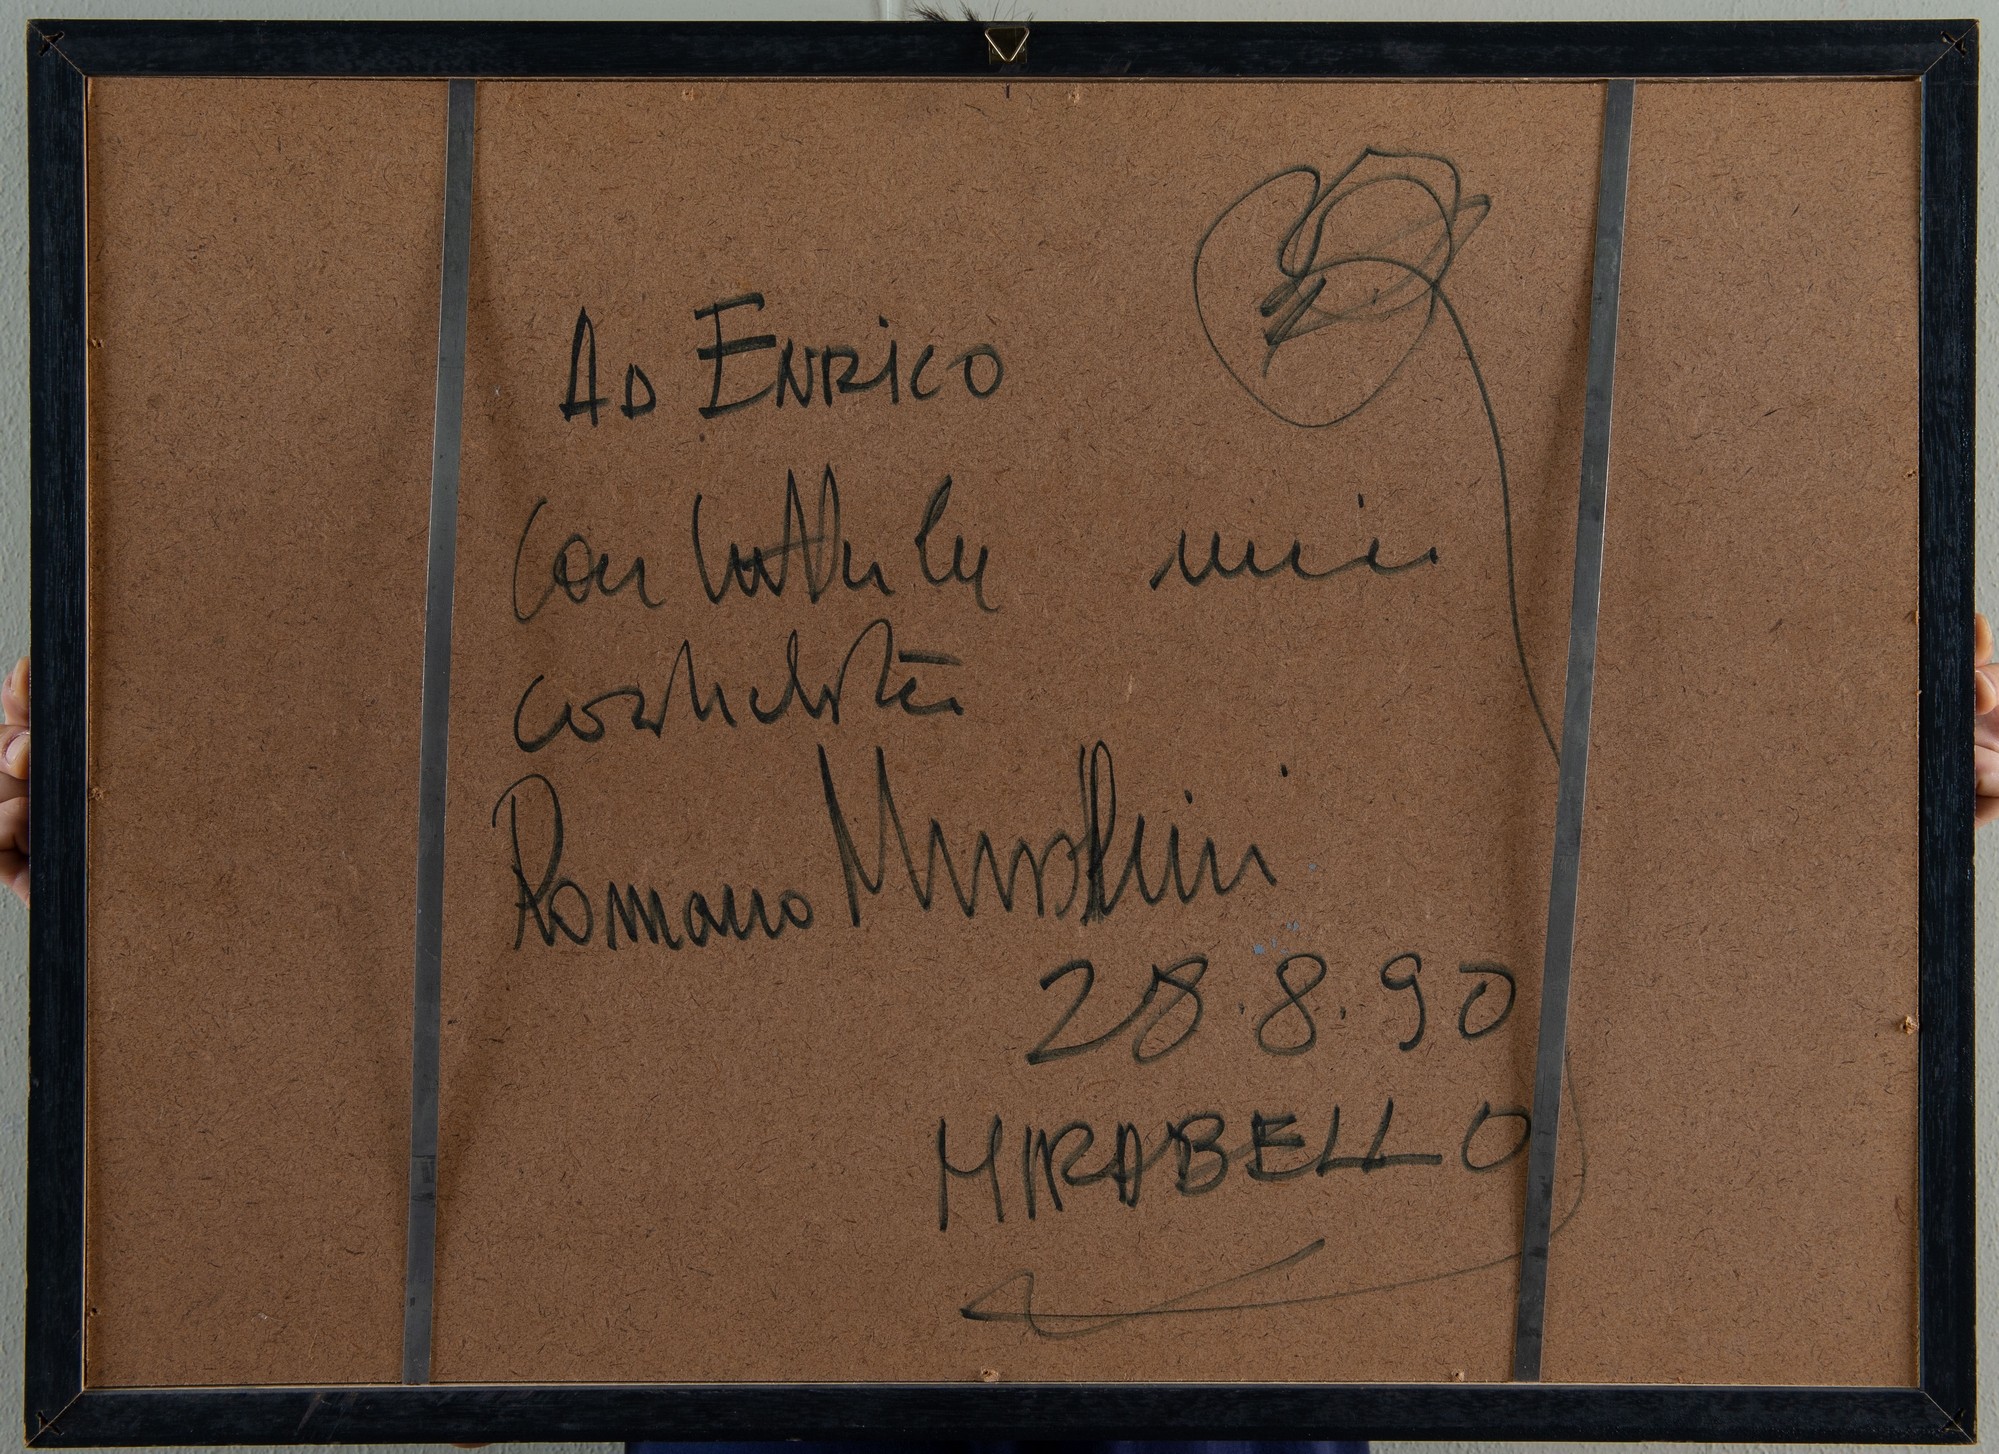 AD ENRICO
con tutta la mia
cordialità
Romano Mussolini
28.8.90
MIRABELLO